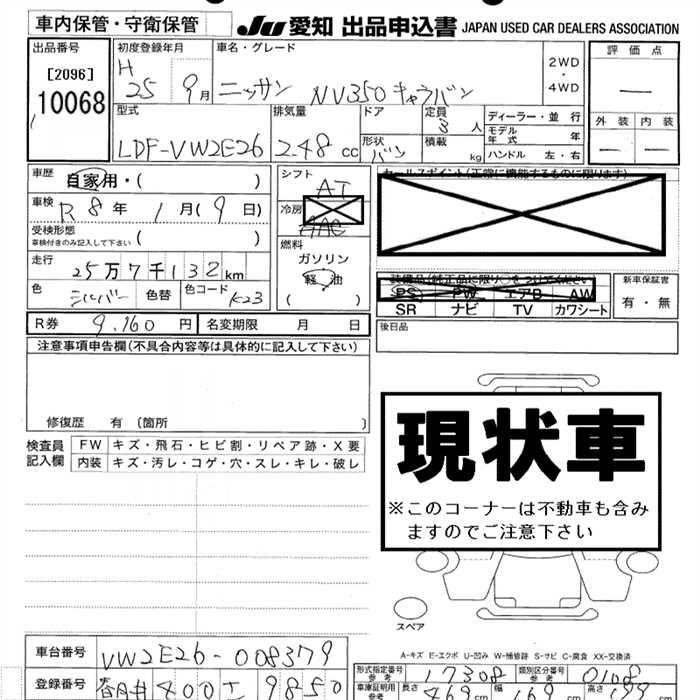 車内保管・守衛保管
JU 愛知 出品申込書 JAPAN USED CAR DEALERS ASSOCIATION
出品番号
[2096]
10068
初度登録年月
H 25 9月
車名・グレード
ニッサン NV350 キャラバン
2WD
・
4WD
評価点
—
外装 内装
— —
型式
LDF-VW2E26
排気量
2.48 cc
ドア
形状
バン
定員
3 人
積載
kg
ディーラー・並行
モデル年式 年
ハンドル 左・右
車歴
自家用・( )
車検
R 8年 1月(9日)
受検形態
車検付きのみ記入して下さい ( )
走行
25万7千132km
色
シルバー
色替
色コード
K23
シフト
AT
冷房
AAC
燃料
ガソリン
軽油
( )
セールスポイント(正常に機能するものに限ります)
装備品(純正品に限り○をつけてください)
PS PW エアB AW
SR ナビ TV カワシート
新車保証書
有・無
R券 9,160 円
名変期限 月 日
後日品
注意事項申告欄(不具合内容等は具体的に記入して下さい)
修復歴 有〔箇所 〕
検査員記入欄
FW キズ・飛石・ヒビ割・リペア跡・X要
内装 キズ・汚レ・コゲ・穴・スレ・キレ・破レ
現状車
※このコーナーは不動車も含み
ますのでご注意下さい
スペア
A-キズ E-エクボ U-凹み W-補修跡 S-サビ C-腐食 XX-交換済
車台番号
VW2E26-008379
登録番号
春日井 400 す 9850
形式指定番号
参考
17308
類別区分番号
参考
0108
車庫証明用
参考
長さ 469 cm
幅 169 cm
高さ 199 cm